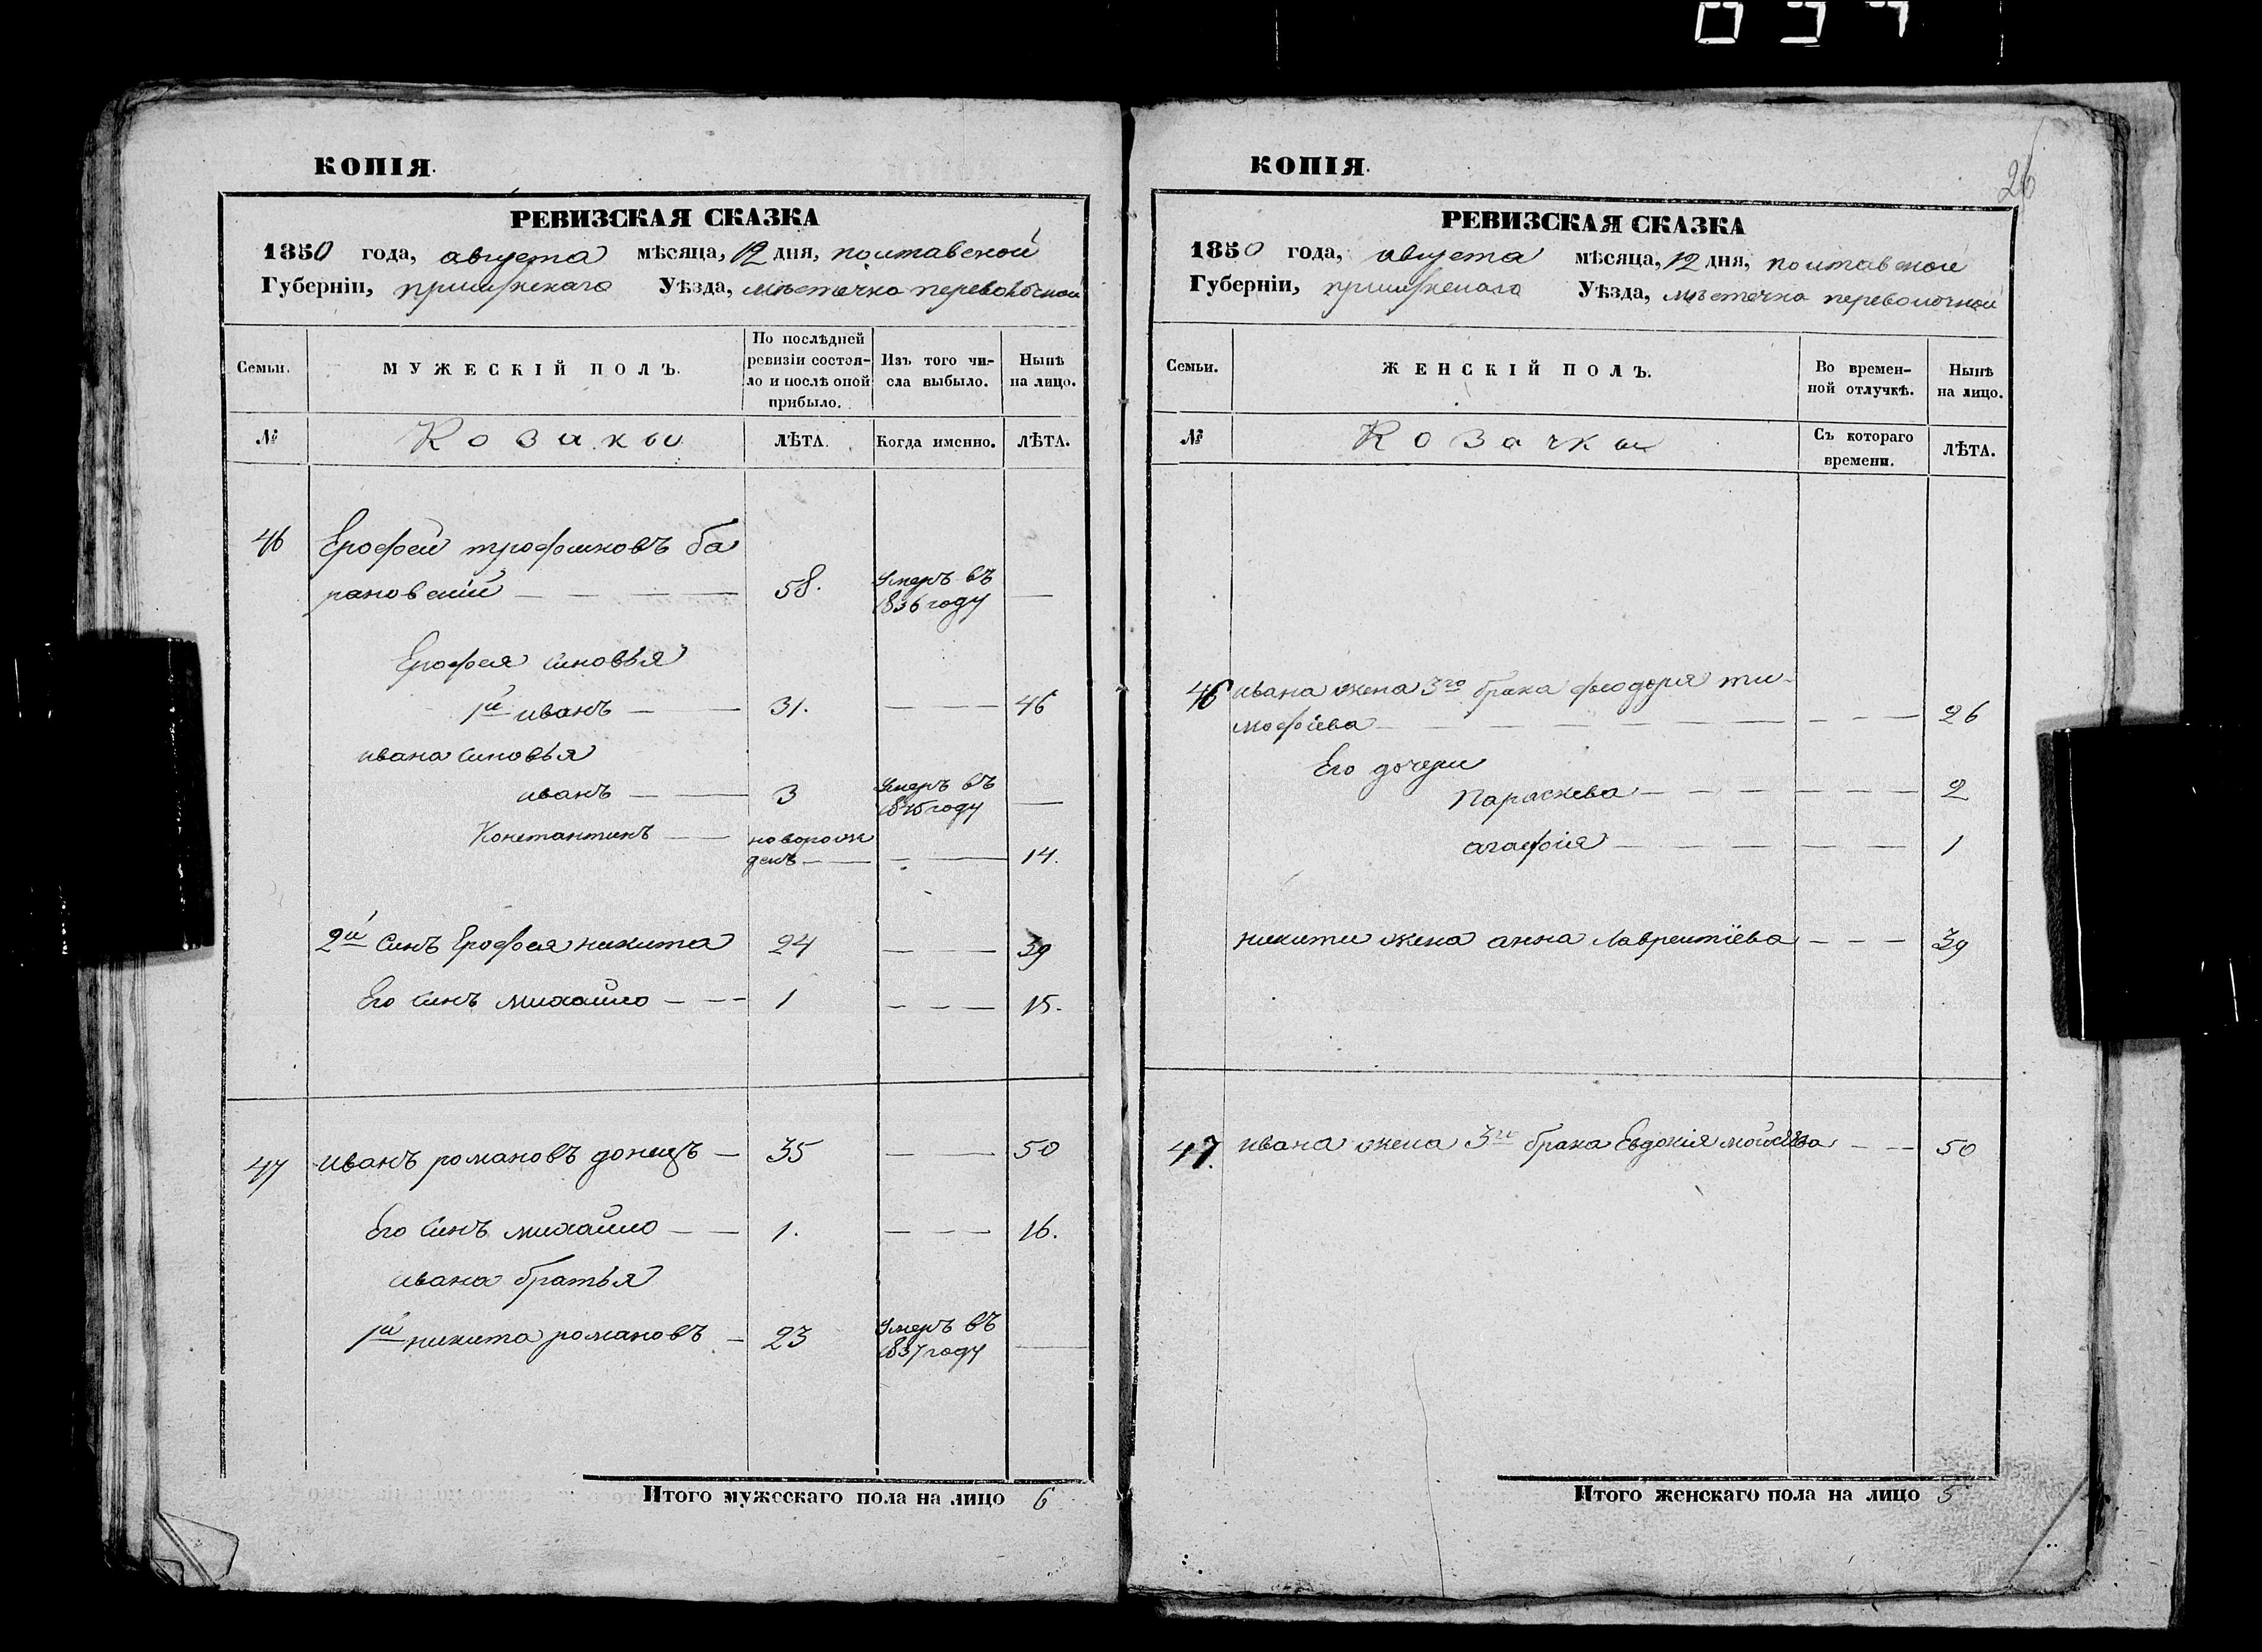 КОПІЯ.
РЕВИЗСКАЯ СКАЗКА
1850 года, августа мѣсяца, 12 дня, полтавской
Губерніи, прилускаго Уѣзда, мѣстечка переволочной
Семьи.
МУЖЕСКІЙ ПОЛЪ.
По послѣдней
ревизіи состоя-
ло и послѣ оной
прибыло.
Изъ того чи-
сла выбыло.
Нынѣ
на лицо.
№
Козаки
ЛѢТА.
Когда именно.
ЛѢТА.
46 Ерофей трофимовъ ба
рановскій — 58. Умеръ въ
1836 году —
Ерофея синовья
1й иванъ — 31. — 46
ивана синовья
иванъ — 3 Умеръ въ
1845 году —
Константинъ — новорож
денъ — — 14.
2й Синъ Ерофея никита 24 — 39
Его Синъ михайло — 1 — 15.
47 иванъ романовъ донецъ — 35 — 50
Его Синъ михайло — 1. — 16.
ивана братья
1й никита романовъ — 23 Умеръ въ
1837 году —
Итого мужескаго пола на лицо 6
КОПІЯ.
26
РЕВИЗСКАЯ СКАЗКА
1850 года, августа мѣсяца, 12 дня, полтавской
Губерніи, прилускаго Уѣзда, мѣстечка переволочной
Семьи.
ЖЕНСКІЙ ПОЛЪ.
Во времен-
ной отлучкѣ.
Нынѣ
на лицо.
№
Козачки
Съ котораго
времени.
ЛѢТА.
46 ивана жена 3го брака феодория ти-
мофіева — 26
Его дочери
Параскева — 2
агафія — 1
никити жена анна Лаврентіева — 39
47. ивана жена 3го брака Евдокія мойсѣева — 50
Итого женскаго пола на лицо 5